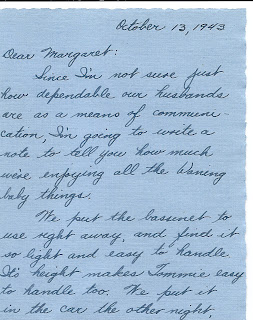 October 13, 1943
Dear Margaret:
Since I'm not sure just
how dependable our husbands
are as a means of communi-
cation, I'm going to write a
note to tell you how much
we're enjoying all the Waning
baby things.
We put the bassinet to
use right away, and find it
so light and easy to handle.
It's height makes Tommie easy
to handle too. We put it
in the car the other night,